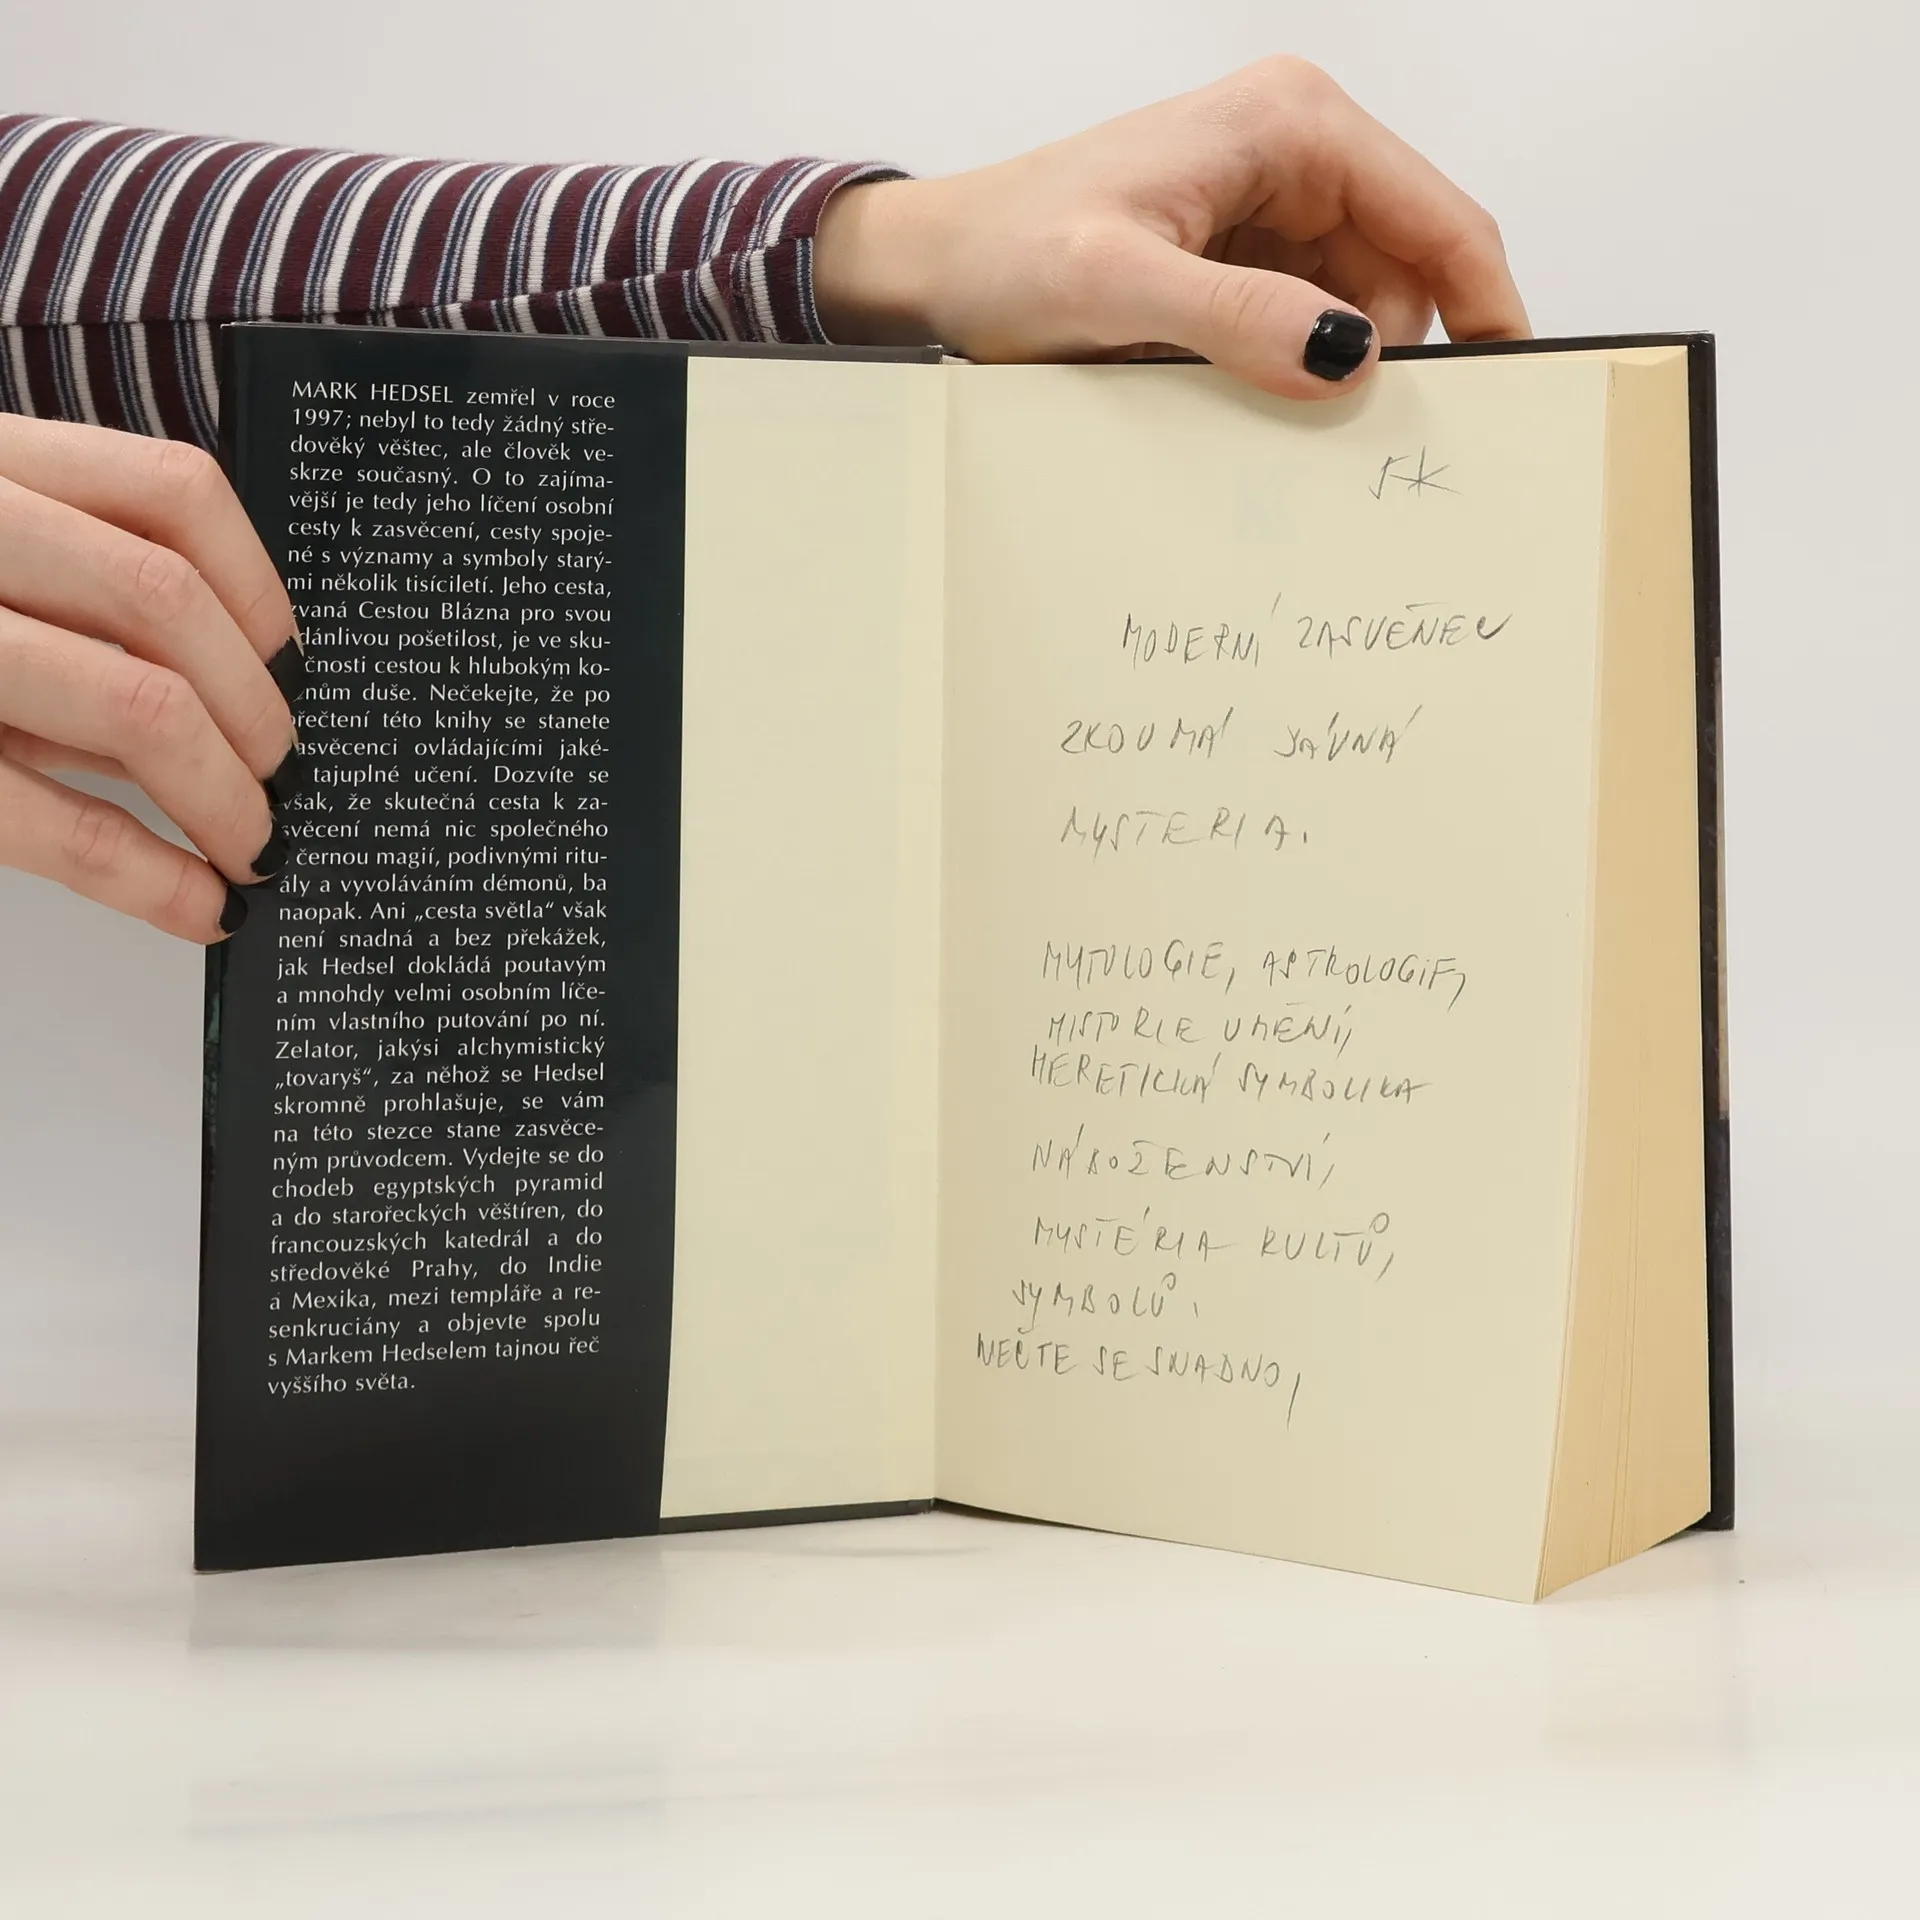 MARK HEDSEL zemřel v roce
1997; nebyl to tedy žádný stře-
dověký věštec, ale člověk ve-
skrze současný. O to zajíma-
vější je tedy jeho líčení osobní
cesty k zasvěcení, cesty spoje-
né s významy a symboly starý-
mi několik tisíciletí. Jeho cesta,
zvaná Cestou Blázna pro svou
dánlivou pošetilost, je ve sku-
čnosti cestou k hlubokým ko-
nům duše. Nečekejte, že po
přečtení této knihy se stanete
asvěcenci ovládajícími jaké-
tajuplné učení. Dozvíte se
však, že skutečná cesta k za-
svěcení nemá nic společného
černou magií, podivnými ritu-
ály a vyvoláváním démonů, ba
naopak. Ani „cesta světla“ však
není snadná a bez překážek,
jak Hedsel dokládá poutavým
a mnohdy velmi osobním líče-
ním vlastního putování po ní.
Zelator, jakýsi alchymistický
„tovaryš“, za něhož se Hedsel
skromně prohlašuje, se vám
na této stezce stane zasvěce-
ným průvodcem. Vydejte se do
chodeb egyptských pyramid
a do starořeckých věštíren, do
francouzských katedrál a do
středověké Prahy, do Indie
a Mexika, mezi templáře a ro-
senkruciány a objevte spolu
s Markem Hedselem tajnou řeč
vyššího světa.
MODERNÍ ZASVĚNEC
ZKOUMÁ
MYSTERIA.
MYTOLOGIE, ASTROLOGIE,
HISTORIE UMĚNÍ,
HERETICKÁ SYMBOLIKA
NÁBOŽENSTVÍ,
MYSTÉRIA KULTŮ,
SYMBOLŮ.
NEČTE SE SNADNO,